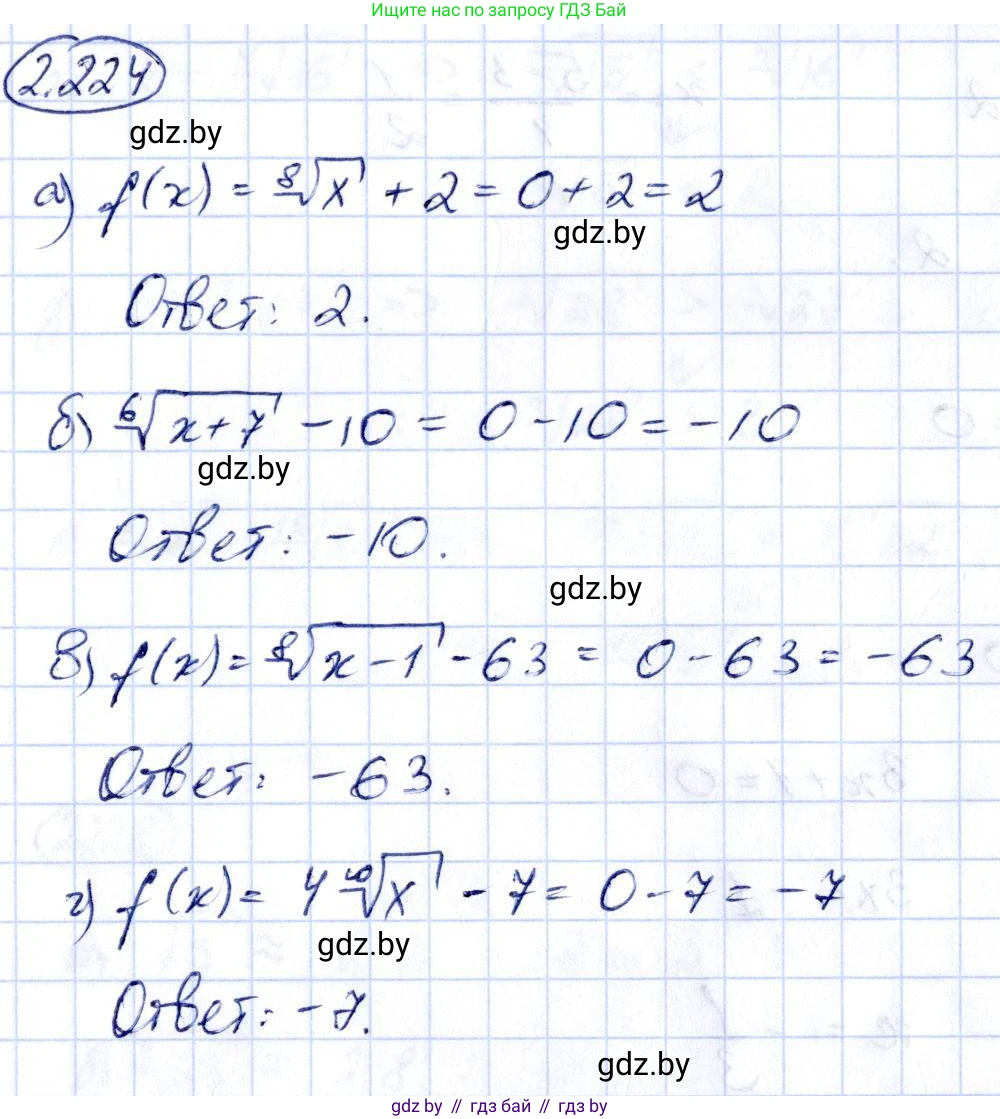 Ищите нас по запросу ГДЗ Бай
2.224
gdz.by
а) f(x) = ⁸√x + 2 = 0 + 2 = 2
gdz.by
Ответ: 2.
б) ⁶√(x+7) - 10 = 0 - 10 = -10
gdz.by
Ответ: -10.
gdz.by
в) f(x) = ⁸√(x-1) - 63 = 0 - 63 = -63
Ответ: -63.
г) f(x) = 4 ¹⁰√x - 7 = 0 - 7 = -7
gdz.by
Ответ: -7.
gdz.by
gdz by // гдз бай // gdz by